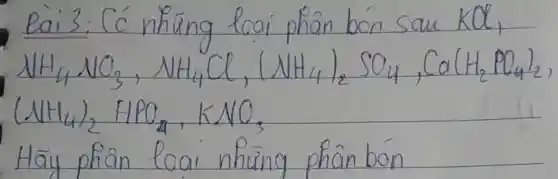 Bài 3: Có những loại phân bón sau KCl,
NH₄NO₃, NH₄Cl, (NH₄)₂ SO₄, Ca(H₂PO₄)₂,
(NH₄)₂ HPO₄, KNO₃
Hãy phân loại những phân bón